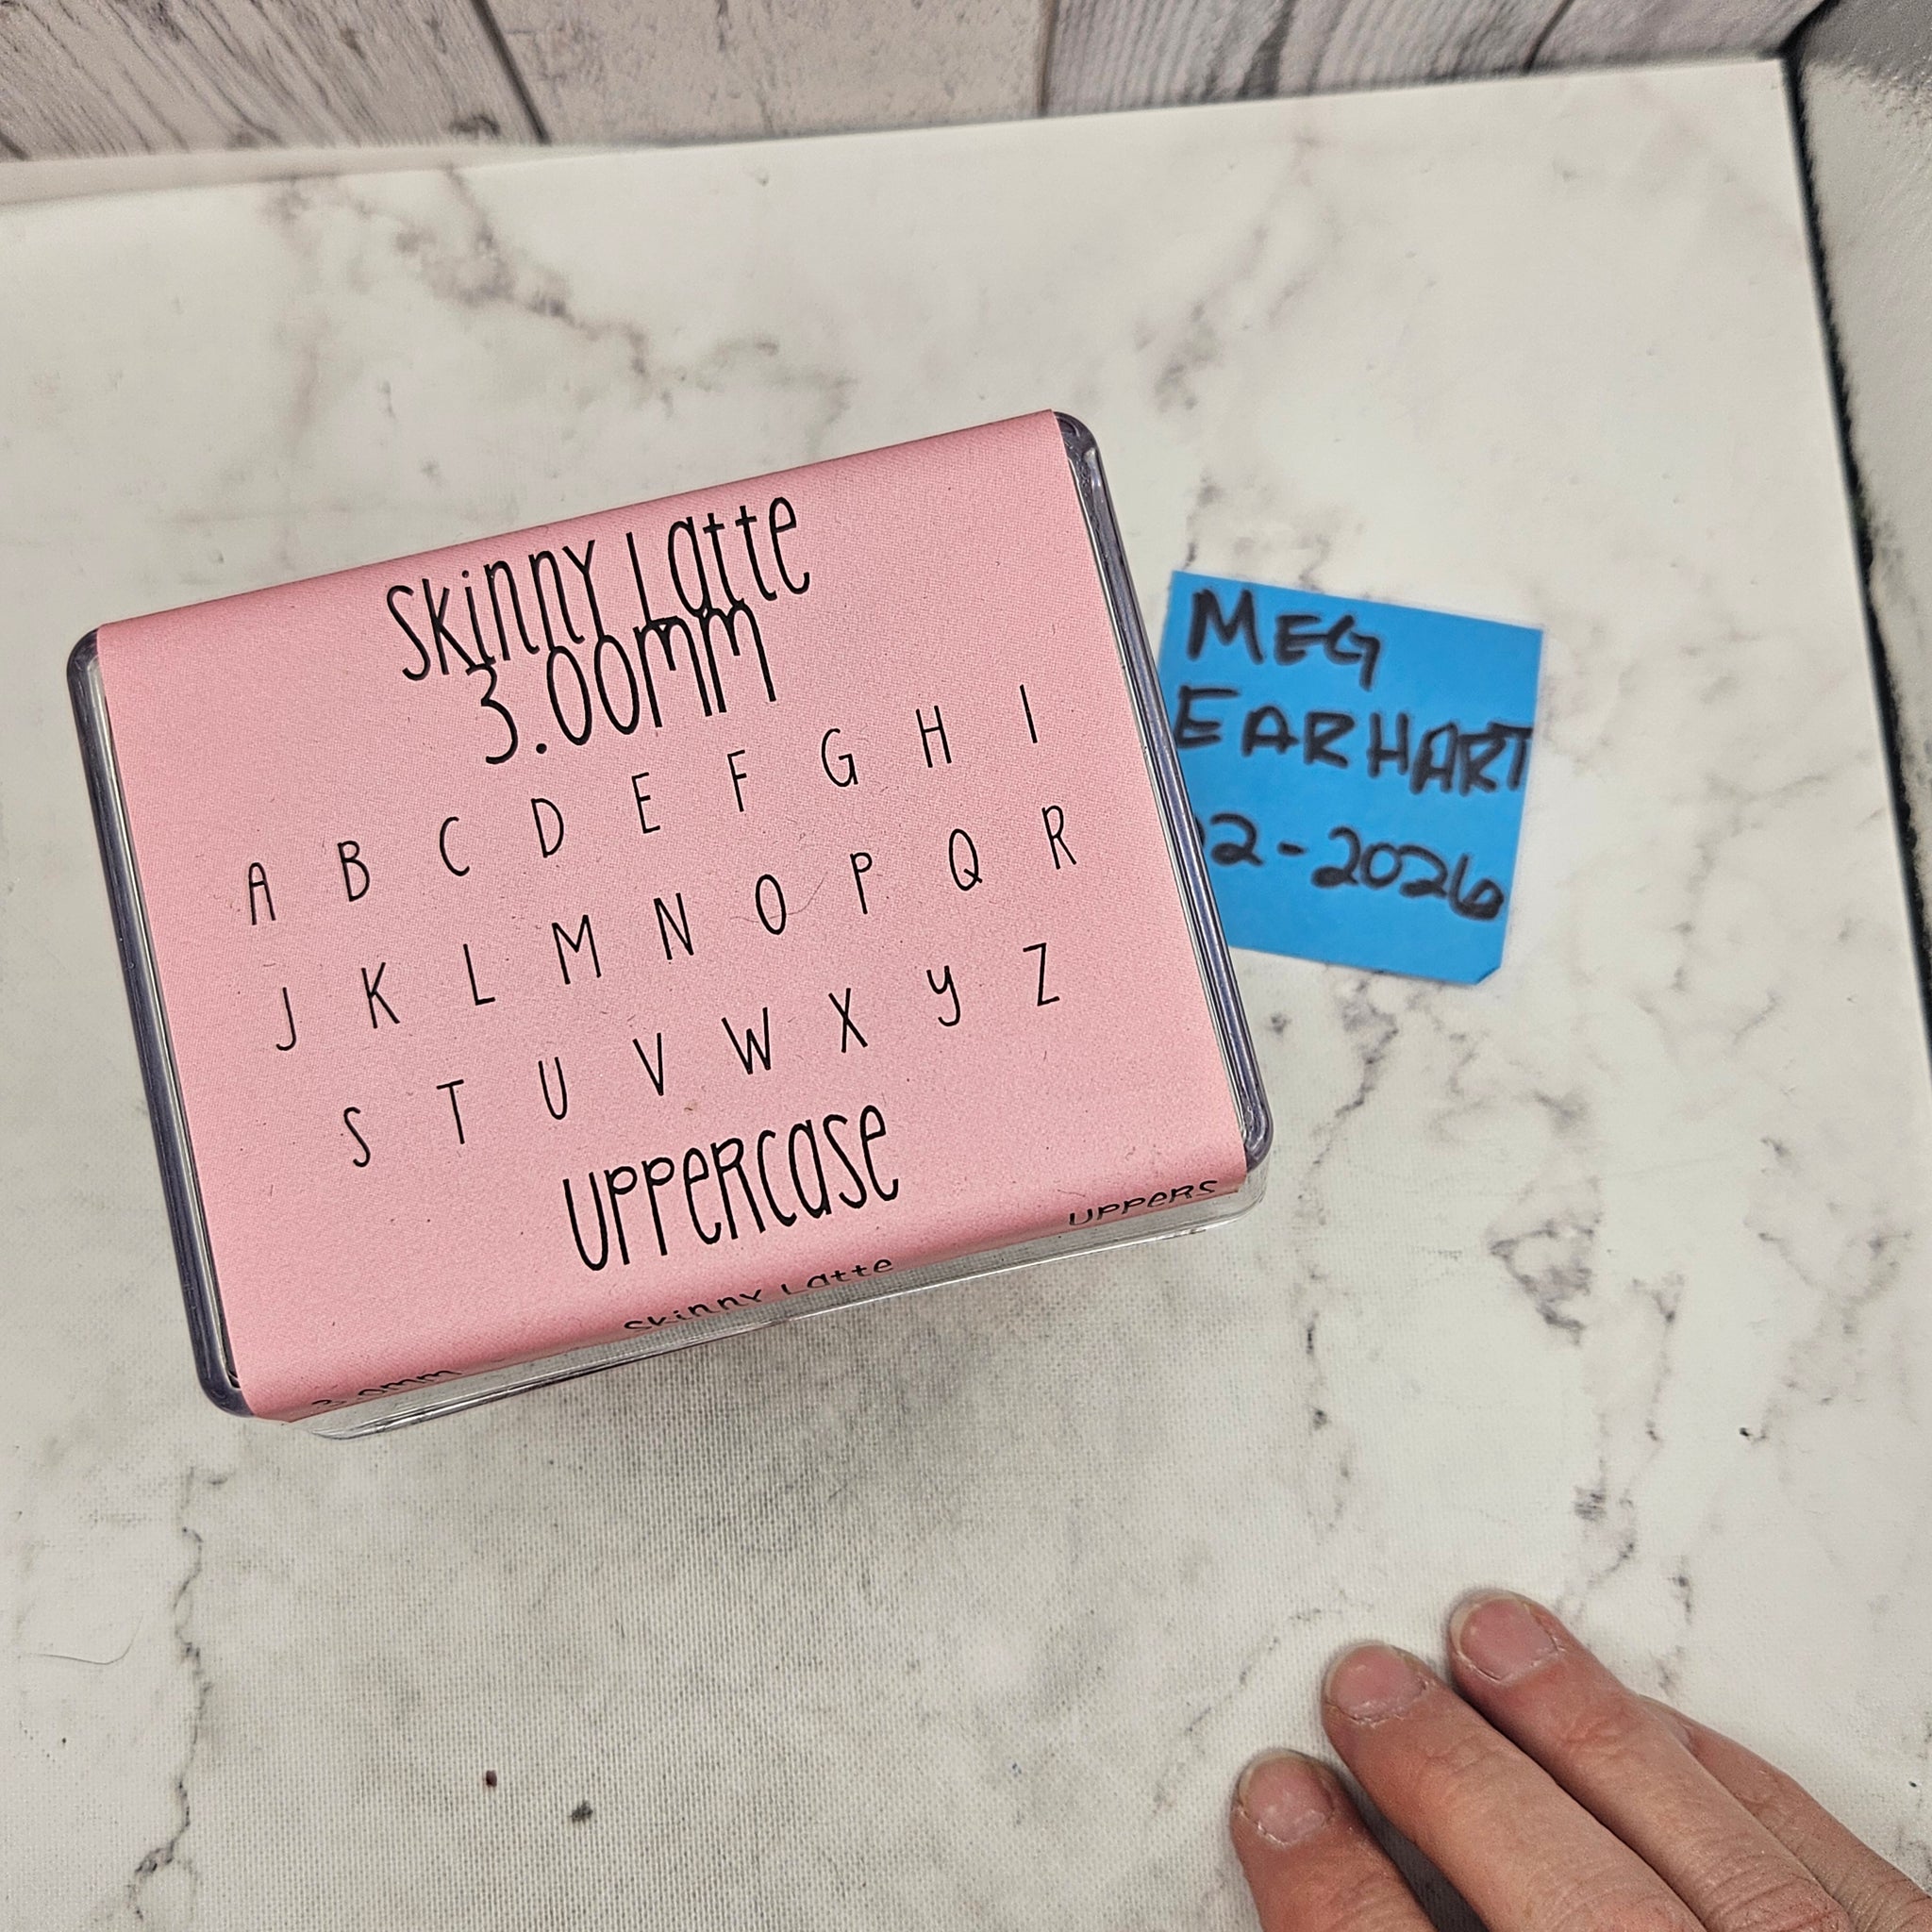 Skinny Latte
3.00mm
A B C D E F G H I
J K L M N O P Q R
S T U V W X y Z
UPPERCASE
3.0mm Skinny Latte UPPERS
MEG
EARHART
2-2026